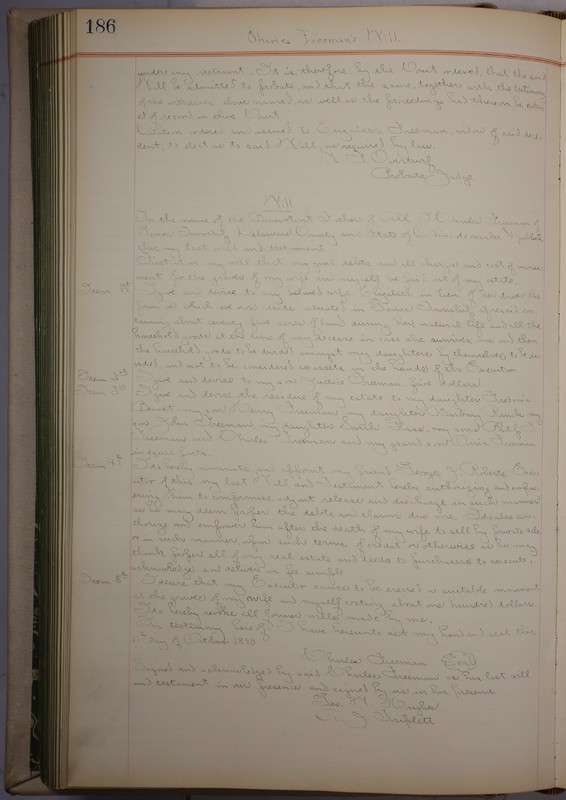 186
Charles Freeman's Will.
under my restraint. It is, therefore, by the Court ordered, that the said
Will be admitted to probate and that the same, together with the testimony
of the witnesses above named, as well as the proceedings had therein be enter-
ed of record in this Court.
Citation ordered issued to Elizabeth Freeman, widow of said dece-
dent, to elect as to said Will, as required by law.
Probate Judge
Will
In the name of the Benevolent Father of All. I Charles Freeman of
Township Delaware County and State of Ohio do make & publish
this my last will and testament.
First it is my will that my just debts and all charges and cost of monu-
ment for the graves of my wife and myself be paid out of my estate.
Item 1st I give and devise to my beloved wife Elizabeth in lieu of her dower the
farm on which we now reside situated in Township aforesaid con-
taining about seventy five acres of land during her natural life and all the
household goods at the time of my decease in case she survives me and then
the household goods to be divided amongst my daughters by themselves to be di-
vided and not to be considered as assets in the hands of the Executor
Item 2nd I give and devise to my son Freeman five dollars
Item 3d I give and devise the residue of my estate to my daughter
my son Henry Freeman, my daughter my
son John Freeman, my daughter Sarah my sons
Freeman and Charles Freeman and my grand son Freeman
in equal parts.
Item 4th I do hereby nominate and appoint my friend George J. Roberts Exec-
utor of this my last Will and Testament hereby authorizing and empow-
ering him to compromise adjust release and discharge in such manner
as he may deem proper the debts and claims due me. I do also au-
thorize and empower him after the death of my wife to sell by private sale
or in such manner, upon such terms of credit or otherwise as he may
think proper all of my real estate and deeds to purchasers to execute,
acknowledge and deliver in fee simple
Item 5th I desire that my Executor cause to be erected a suitable monument
at the graves of my wife and myself costing about one hundred dollars
I do hereby revoke all former wills made by me.
In testimony hereof I have hereunto set my hand and seal this
11th day of October 1890
Charles Freeman Seal
Signed and acknowledged by said Charles Freeman as his last will
and testament in our presence and signed by us in his presence
Hughes